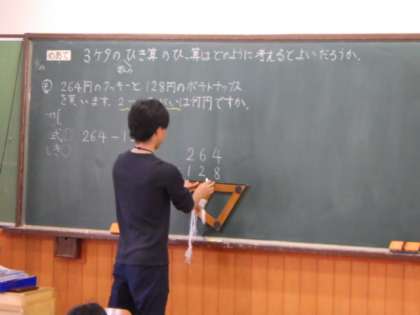 めあて 3ケタのひき算のひっ算はどのように考えるとよいだろうか。
264円のクッキーと128円のポテトチップス
を買います。2つのちがいは何円ですか。
式 264-1
264
128